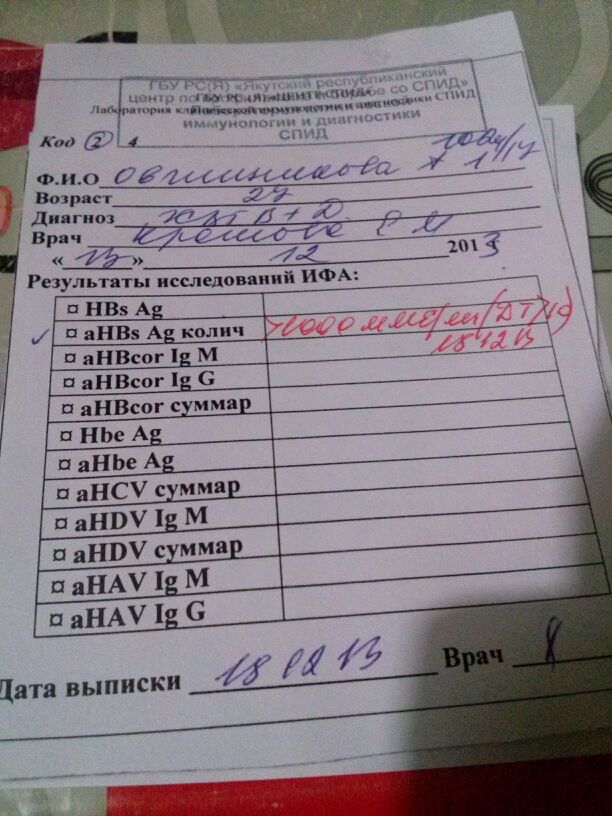 ГБУ РС(Я) «Якутский республиканский
центр по профилактике и борьбе со СПИД»
ГБУ РС (Я) «ЦЕНТР СПИД»
Лаборатория клинической иммунологии и диагностики СПИД
иммунологии и диагностики
СПИД
Код 2 4
Ф.И.О
Возраст 27
Диагноз ХВГ В + Д
Врач
« 13 » 12 2013
Результаты исследований ИФА:
¤ HBs Ag
¤ aHBs Ag колич >1000 мме/мл (ДТ>10)
18 12 13
¤ aHBcor Ig M
¤ aHBcor Ig G
¤ aHBcor суммар
¤ Hbe Ag
¤ aHbe Ag
¤ aHCV суммар
¤ aHDV Ig M
¤ aHDV суммар
¤ aHAV Ig M
¤ aHAV Ig G
Дата выписки 18 12 13 Врач